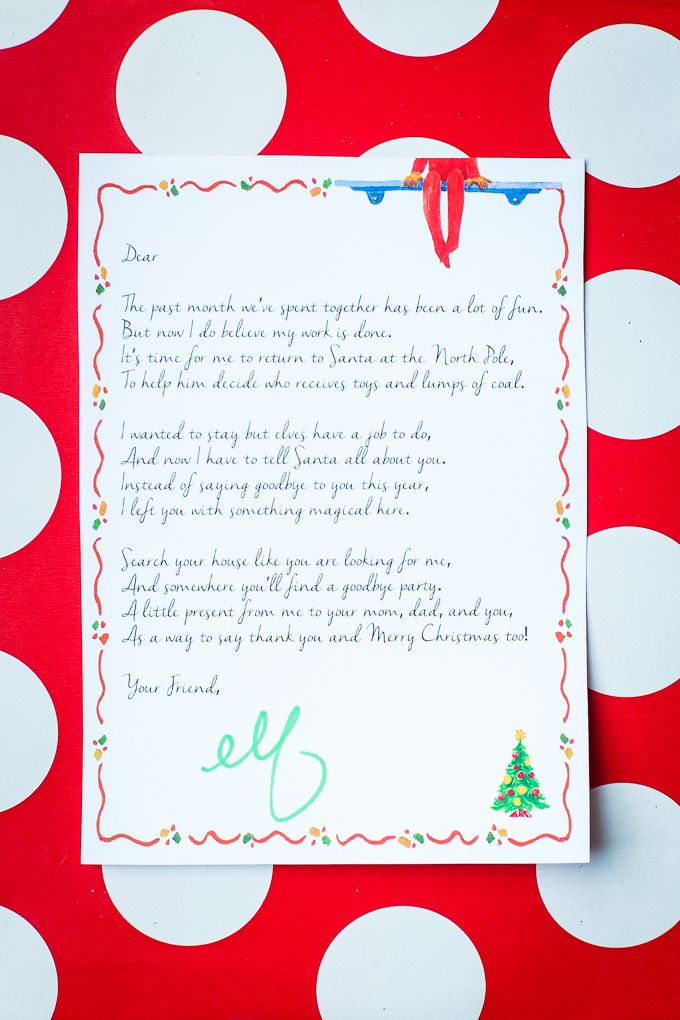 Dear
The past month we've spent together has been a lot of fun.
But now I do believe my work is done.
It's time for me to return to Santa at the North Pole,
To help him decide who receives toys and lumps of coal.
I wanted to stay but elves have a job to do,
And now I have to tell Santa all about you.
Instead of saying goodbye to you this year,
I left you with something magical here.
Search your house like you are looking for me,
And somewhere you'll find a goodbye party.
A little present from me to your mom, dad, and you,
As a way to say thank you and Merry Christmas too!
Your Friend,
elf